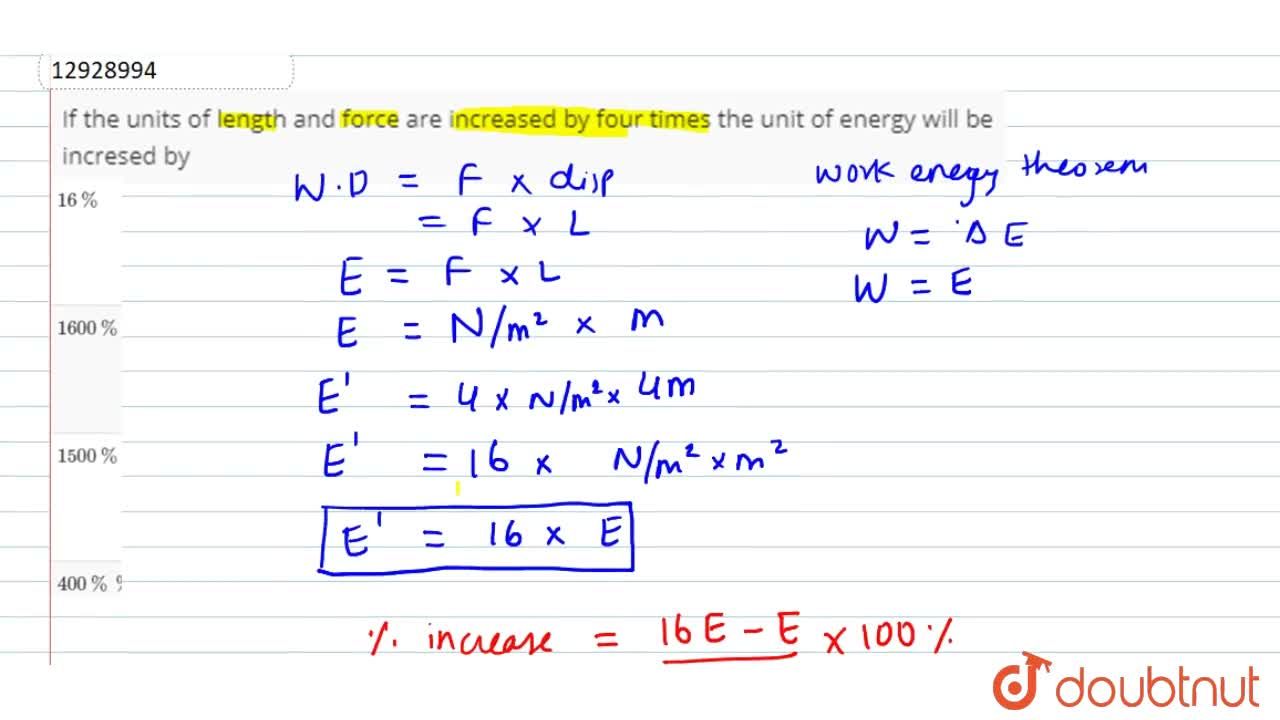 12928994
If the units of length and force are increased by four times the unit of energy will be
incresed by
16 %
1600 %
1500 %
400 % %
W.D = F x disp
= F x L
E = F x L
E = N/m² x m
E' = 4 x N/m² x 4m
E' = 16 x N/m² x m²
E' = 16 x E
work energy theorem
W = Δ E
W = E
% increase = 16E - E x 100 %
doubtnut